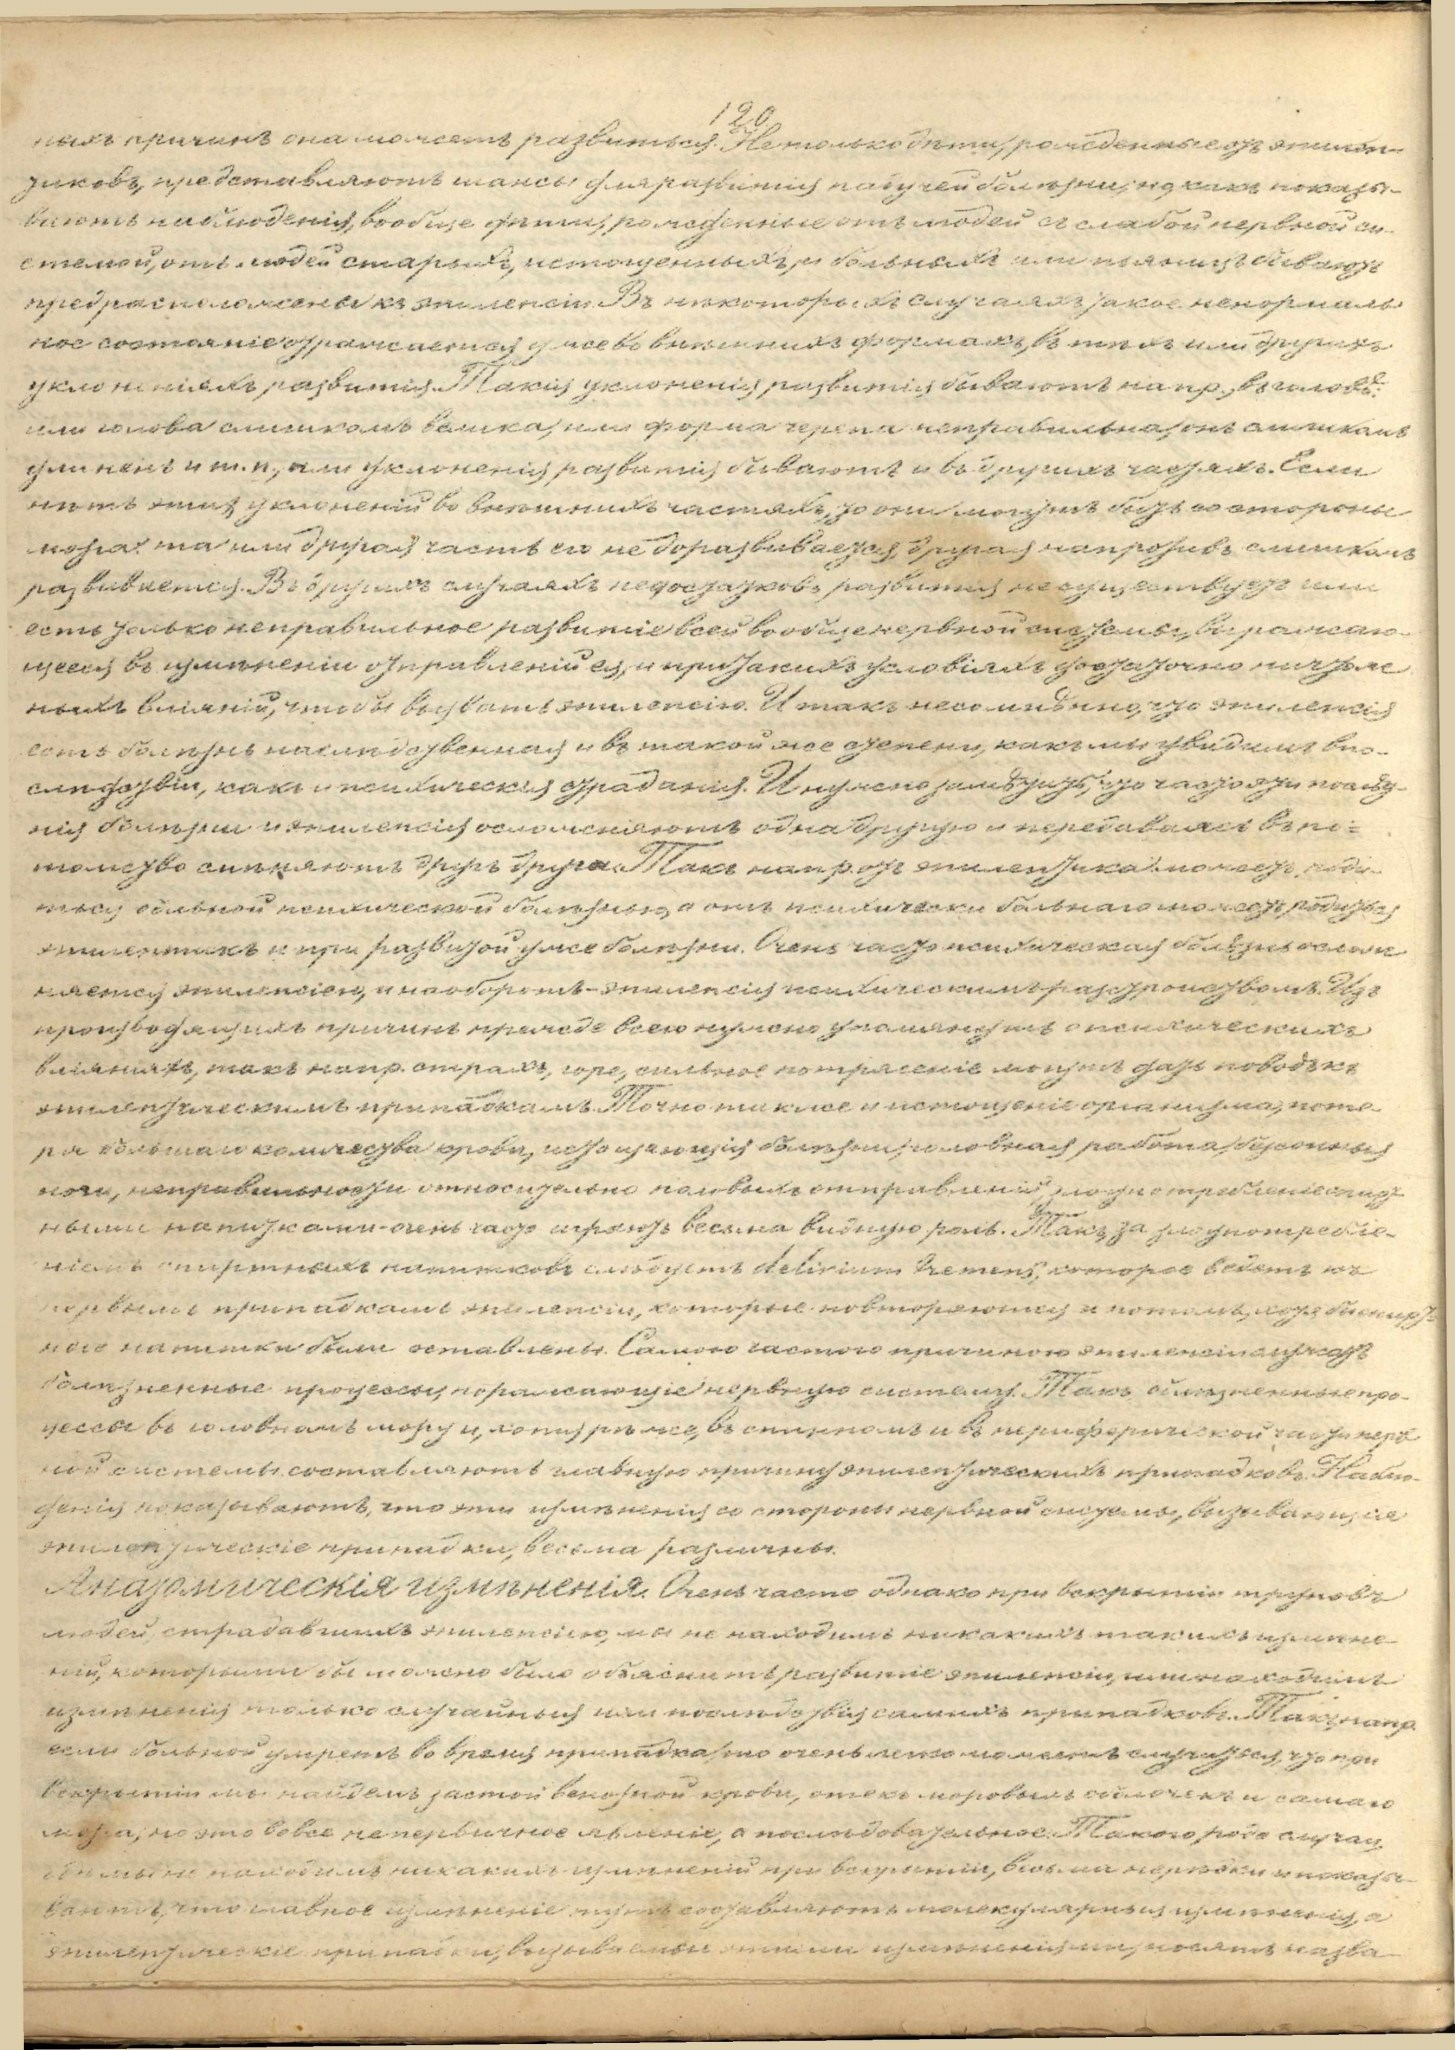 120
ныхъ причинъ она можетъ развиться. Не только дѣти, рожденные отъ эпилеп-
тиковъ, представляютъ шансы для развитія падучей болѣзни, но, какъ показы-
ваютъ наблюденія, вообще дѣти, рожденные отъ людей съ слабой нервной си-
стемой, отъ людей старыхъ, истощенныхъ, и больныхъ или пьяницъ бываютъ
предрасположены къ эпилепсіи. Въ нѣкоторыхъ случаяхъ такое ненормаль-
ное состояніе отражается уже во внѣшнихъ формахъ, въ тѣхъ или другихъ
уклоненіяхъ развитія. Такія уклоненія развитія бываютъ напр., въ головѣ:
или голова слишкомъ велика, или форма черепа неправильна, онъ слишкомъ
длиненъ и т. п., или уклоненія развитія бываютъ и въ другихъ частяхъ. Если
нѣтъ этихъ уклоненій во внѣшнихъ частяхъ, то они могутъ быть со стороны
мозга: та или другая часть его не доразвивается, другая напротивъ слишкомъ
развивается. Въ другихъ случаяхъ недостатковъ развитія не существуетъ или
есть только неправильное развитіе всей вообще нервной системы, выражаю-
щееся въ измѣненіи отправленій ея, и при такихъ условіяхъ достаточно ничтож-
ныхъ вліяній, чтобы вызвать эпилепсію. И такъ несомнѣнно, что эпилепсія
есть болѣзнь наслѣдственная и въ такой же степени, какъ мы увидимъ впо-
слѣдствіи, какъ и психическія страданія. И нужно замѣтить, что часто эти послѣд-
нія болѣзни и эпилепсія осложняютъ одна другую и передаваясь въ по-
томство смѣняютъ другъ друга. Такъ напр. отъ эпилептика можетъ роди-
ться больной психической болѣзнью, а отъ психически больнаго можетъ родиться
эпилептикъ и при развитой уже болѣзни. Очень часто психическая болѣзнь ослож-
няется эпилепсіею, и наоборотъ - эпилепсія психическимъ разстройствомъ. Изъ
производящихъ причинъ прежде всего нужно упомянуть о психическихъ
вліяніяхъ, такъ напр. страхъ, горе, сильное потрясеніе могутъ дать поводъ къ
эпилептическимъ припадкамъ. Точно также и истощеніе организма, поте-
ря большаго количества крови, истощающія болѣзни, головная работа, безсонныя
ночи, неправильности относительно половыхъ отправленій, злоупотребленіе спирт-
ными напитками - очень часто играютъ весьма видную роль. Такъ, за злоупотребле-
ніемъ спиртныхъ напитковъ слѣдуетъ delirium tremens, которое ведетъ къ
первымъ припадкамъ эпилепсіи, которые повторяются и потомъ, хотя бы спирт-
ные напитки были оставлены. Самою частою причиною эпилепсіи служатъ
болѣзненные процессы, поражающіе нервную систему. Такъ болѣзненные про-
цессы въ головномъ мозгу и, хотя рѣже, въ спинномъ и въ периферической части нерв-
ной системы составляютъ главную причину эпилептическихъ припадковъ. Наблю-
денія показываютъ, что эти измѣненія со стороны нервной системы, вызывающія
эпилептическіе припадки, весьма различны.
Анатомическія измѣненія. Очень часто однако при вскрытіи труповъ
людей, страдавшихъ эпилепсіею, мы не находимъ никакихъ такихъ измѣне-
ній, которыми бы можно было объяснить развитіе эпилепсіи, или находимъ
измѣненія только случайныя или послѣдствія самихъ припадковъ. Такъ, напр.
если больной умретъ во время припадка, то очень легко можетъ случиться, что при
вскрытіи мы найдемъ застой венозной крови, отекъ мозговыхъ оболочекъ и самаго
мозга, но это вовсе не первичное явленіе, а послѣдовательное. Такого рода случаи,
гдѣ мы не находимъ никакихъ измѣненій при вскрытіи, весьма нерѣдки и показы-
ваютъ, что главное измѣненіе тутъ составляютъ молекулярныя измѣненія, а
эпилептическіе припадки, вызываемые этими измѣненіями, носятъ назва-